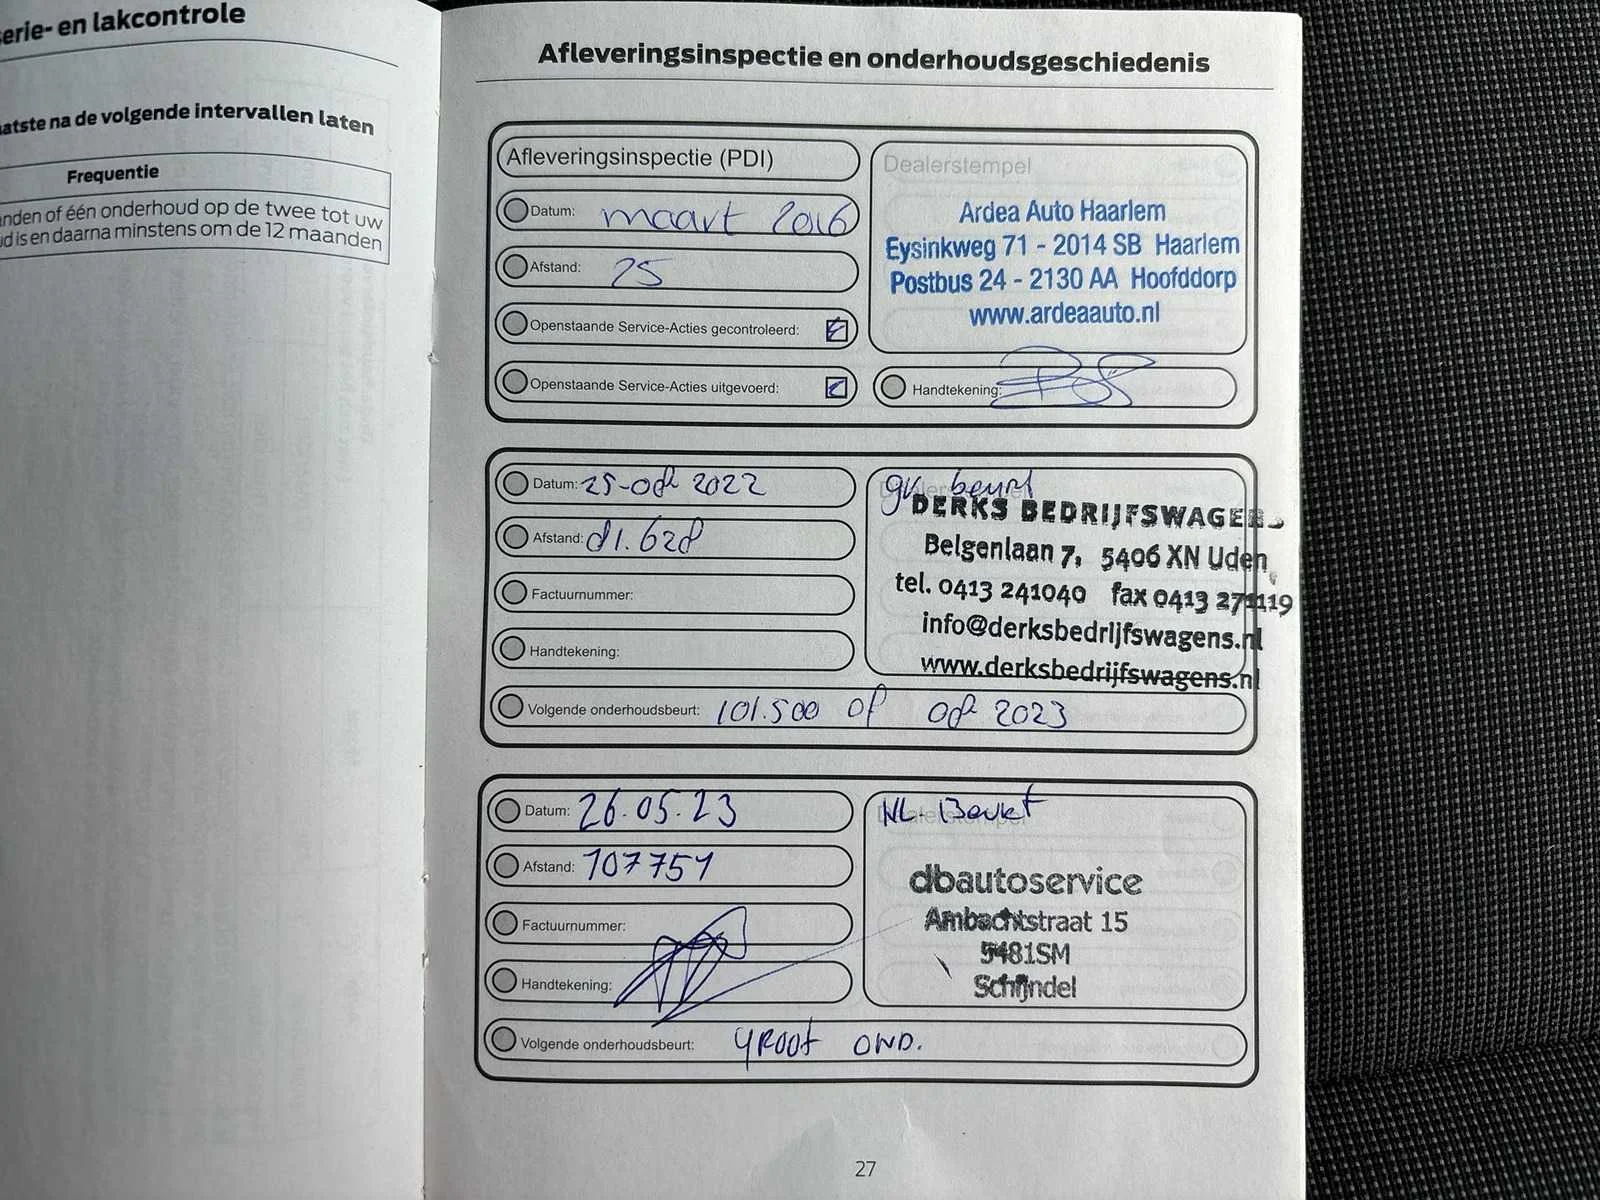 serie- en lakcontrole
aatste na de volgende intervallen laten
Frequentie
anden of één onderhoud op de twee tot uw
ud is en daarna minstens om de 12 maanden
Afleveringsinspectie en onderhoudsgeschiedenis
Afleveringsinspectie (PDI)
Datum: maart 2016
Afstand: 25
Openstaande Service-Acties gecontroleerd:
Openstaande Service-Acties uitgevoerd:
Dealerstempel
Ardea Auto Haarlem
Eysinkweg 71 - 2014 SB Haarlem
Postbus 24 - 2130 AA Hoofddorp
www.ardeaauto.nl
Handtekening:
Datum: 25-okt 2022
Afstand: 81.628
Factuurnummer:
Handtekening:
Dealerstempel
beurt
DERKS BEDRIJFSWAGENS
Belgenlaan 7, 5406 XN Uden
tel. 0413 241040 fax 0413 271119
info@derksbedrijfswagens.nl
www.derksbedrijfswagens.nl
Volgende onderhoudsbeurt: 101.500 of okt 2023
Datum: 26.05.23
Afstand: 107751
Factuurnummer:
Handtekening:
Dealerstempel
KL. Beurt
dbautoservice
Ambachtstraat 15
5481SM
Schijndel
Volgende onderhoudsbeurt: groot OND.
27